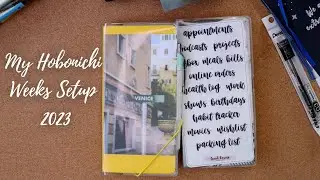 My Hobonichi
Weeks Setup
2023
VENICE
appointments
podcasts projects
labor meals bills
online orders
health log work
shows birthdays
habit tracker
movies wishlist
packing list